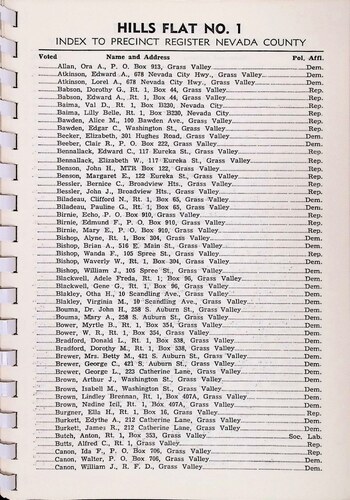 HILLS FLAT NO. 1
INDEX TO PRECINCT REGISTER NEVADA COUNTY
Voted Name and Address Pol. Affl.
Allan, Ora A., P. O. Box 913, Grass Valley Dem.
Atkinson, Edward A., 678 Nevada City Hwy., Grass Valley Dem.
Atkinson, Lorel A., 678 Nevada City Hwy., Grass Valley Dem.
Babson, Dorothy G., Rt. 1, Box 44, Grass Valley Rep.
Babson, Edward A., Rt. 1, Box 44, Grass Valley Rep.
Baima, Val D., Rt. 1, Box B230, Nevada City Rep.
Baima, Lilly Belle, Rt. 1, Box B230, Nevada City Rep.
Bawden, Alice M., 100 Bawden Ave., Grass Valley Rep.
Bawden, Edgar C., Washington St., Grass Valley Rep.
Becker, Elizabeth, 301 Hughes Road, Grass Valley Dem.
Beeber, Clair R., P. O. Box 222, Grass Valley Dem.
Bennallack, Edward C., 117 Eureka St., Grass Valley Rep.
Bennallack, Elizabeth W., 117 Eureka St., Grass Valley Rep.
Benson, John H., MTR Box 122, Grass Valley Rep.
Benson, Margaret E., 122 Eureka St., Grass Valley Rep.
Bessler, Bernice C., Broadview Hts., Grass Valley Rep.
Bessler, John J., Broadview Hts., Grass Valley Rep.
Biladeau, Clifford N., Rt. 1, Box 65, Grass Valley Dem.
Biladeau, Pauline G., Rt. 1, Box 65, Grass Valley Dem.
Birnie, Echo, P. O. Box 910, Grass Valley Rep.
Birnie, Edmund F., P. O. Box 910, Grass Valley Rep.
Birnie, Mary E., P. O. Box 910, Grass Valley Rep.
Bishop, Alyne, Rt. 1, Box 304, Grass Valley Dem.
Bishop, Brian A., 516 E. Main St., Grass Valley Dem.
Bishop, Wanda F., 105 Spree St., Grass Valley Rep.
Bishop, Waverly W., Rt. 1, Box 304, Grass Valley Dem.
Bishop, William J., 105 Spree St., Grass Valley Dem.
Blackwell, Adele Freda, Rt. 1, Box 96, Grass Valley Dem.
Blackwell, Gene G., Rt. 1, Box 96, Grass Valley Dem.
Blakley, Otha H., 10 Scandling Ave., Grass Valley Dem.
Blakley, Virginia M., 10 Scandling Ave., Grass Valley Dem.
Bouma, Dr. John H., 258 S. Auburn St., Grass Valley Dem.
Bouma, Mary A., 258 S. Auburn St., Grass Valley Dem.
Bower, Myrtle B., Rt. 1, Box 354, Grass Valley Dem.
Bower, W. R., Rt. 1, Box 354, Grass Valley Dem.
Bradford, Donald L., Rt. 1, Box 538, Grass Valley Dem.
Bradford, Dorothy M., Rt. 1, Box 538, Grass Valley Dem.
Brewer, Mrs. Betty M., 421 S. Auburn St., Grass Valley Dem.
Brewer, George C., 421 S. Auburn St., Grass Valley Dem.
Brewer, George L., 223 Catherine Lane, Grass Valley Dem.
Brown, Arthur J., Washington St., Grass Valley Dem.
Brown, Isabell M., Washington St., Grass Valley Dem.
Brown, Lindley Brennan, Rt. 1, Box 407A, Grass Valley Dem.
Brown, Nadine Icil, Rt. 1, Box 407A, Grass Valley Dem.
Burgner, Ella H., Rt. 1, Box 16, Grass Valley Rep.
Burkett, Edythe A., 212 Catherine Lane, Grass Valley Dem.
Burkett, James R., 212 Catherine Lane, Grass Valley Dem.
Butch, Anton, Rt. 1, Box 353, Grass Valley Soc. Lab.
Butts, Alfred C., Rt. 1, Grass Valley Rep.
Canon, Ida F., P. O. Box 706, Grass Valley Rep.
Canon, Walter, P. O. Box 706, Grass Valley Dem.
Canon, William J., R. F. D., Grass Valley Dem.